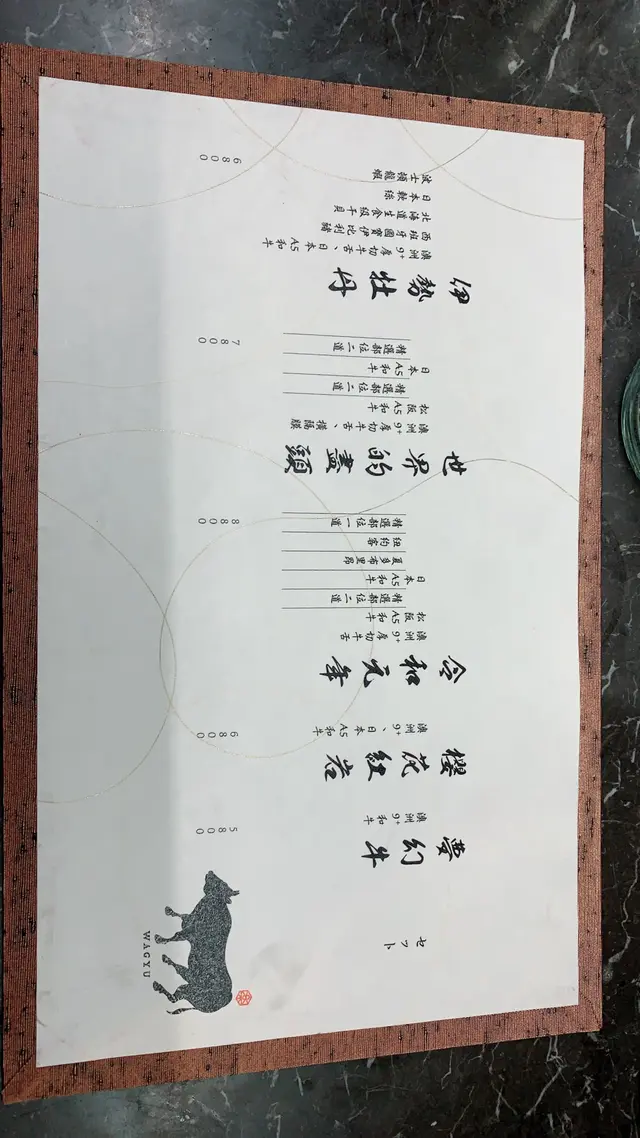 セット
夢幻牛
澳洲9+和牛
5800
櫻花紅岩
澳洲9+、日本A5和牛
6800
令和元年
澳洲9+厚切牛舌
松阪A5和牛
精選部位二道
日本A5和牛
夏多布里昂
紐約客
精選部位一道
8800
世界的盡頭
澳洲9+厚切牛舌、橫隔膜
松阪A5和牛
精選部位二道
日本A5和牛
精選部位二道
7800
伊勢牡丹
澳洲9+厚切牛舌、日本A5和牛
西班牙國寶伊比利豬
北海道生食級干貝
日本軟絲
波士頓龍蝦
6800
WAGYU